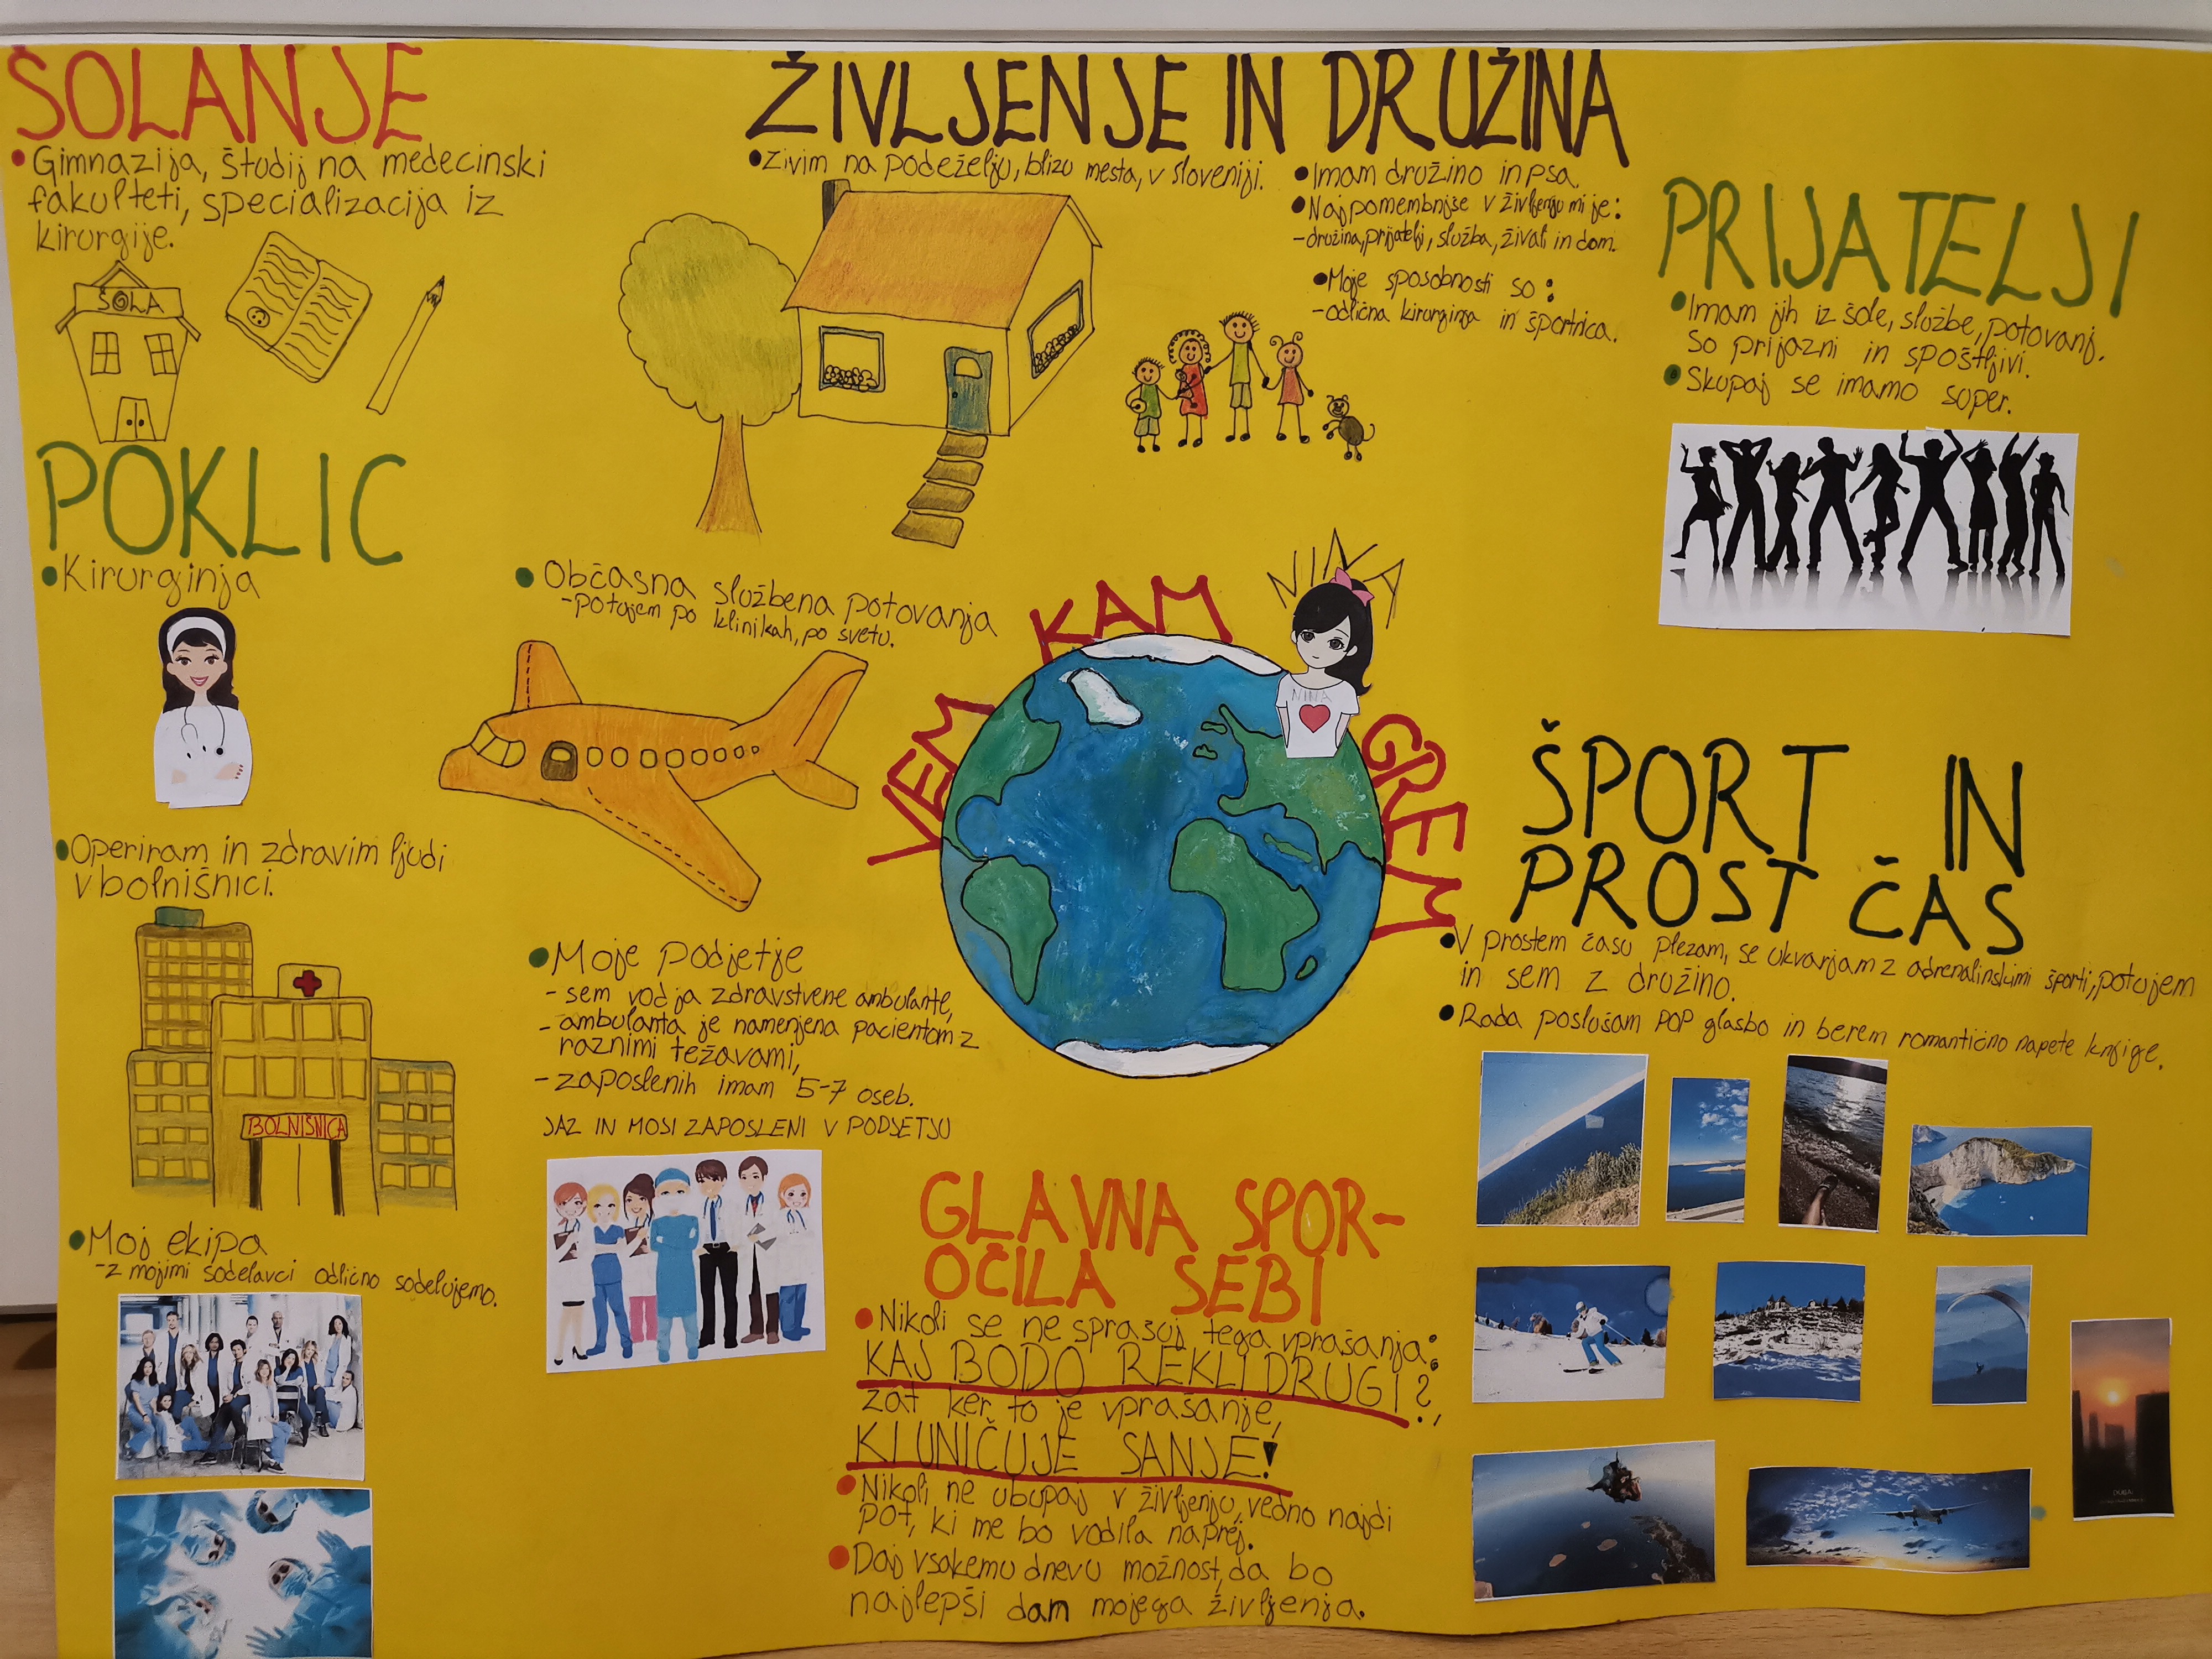 ŠOLANJE
• Gimnazija, študij na medecinski
fakulteti, specializacija iz
kirurgije.
ŠOLA
POKLIC
• Kirurginja
• Operiram in zdravim ljudi
v bolnišnici.
BOLNIŠNICA
• Moj ekipa
- z mojimi sodelavci odlično sodelujemo.
ŽIVLJENJE IN DRUŽINA
• Živim na podeželju, blizu mesta, v sloveniji.
• Imam družino in psa.
• Najpomembnjše v življenju mi je:
- družina, prijatelji, služba, živali in dom.
• Moje sposobnosti so:
- odlična kirurginja in športnica.
• Občasna službena potovanja
- potujem po klinikah, po svetu.
• Moje podjetje
- sem vodja zdravstvene ambulante,
- ambulanta je namenjena pacientom z
raznimi težavami,
- zaposlenih imam 5-7 oseb.
JAZ IN MOJI ZAPOSLENI V PODJETJU
VEM KAM GREM
NINA
NINA
GLAVNA SPOR-
OČILA SEBI
• Nikoli se ne sprašuj tega vprašanja:
KAJ BODO REKLI DRUGI?,
zat ker to je vprašanje,
KI UNIČUJE SANJE!
• Nikoli ne obupaj v življenju, vedno najdi
pot, ki me bo vodila naprej.
• Daj vsakemu dnevu možnost, da bo
najlepši dan mojega življenja.
PRIJATELJI
• Imam jih iz šole, službe, potovanj.
So prijazni in spoštljivi.
• Skupaj se imamo super.
ŠPORT IN
PROST ČAS
• V prostem času plezam, se ukvarjam z adrenalinskimi športi, potujem
in sem z družino.
• Rada poslušam POP glasbo in berem romantično napete knjige.
DUBAI